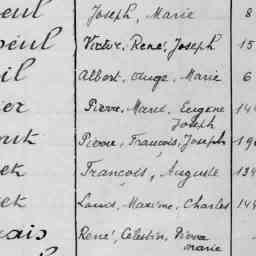 eul Joseph, Marie 8
peul Victor, René, Joseph 15
il Albert, Ange, Marie 6
er Pierre, Marel, Eugène 144
Joseph
out Pierre, François, Joseph 19
et François, Auguste 134
et Louis, Maxime, Charles 144
ais René, Célestin, Pierre
marie